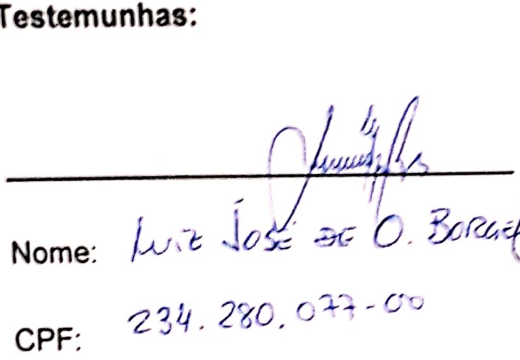 Testemunhas:
Nome: Luiz José de O. Borges
CPF: 234.280.077-00